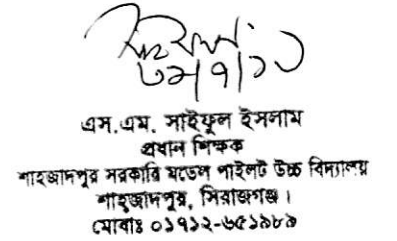 এস.এম. সাইফুল ইসলাম
প্রধান শিক্ষক
শাহজাদপুর সরকারি মডেল পাইলট উচ্চ বিদ্যালয়
শাহজাদপুর, সিরাজগঞ্জ।
মোবাঃ ০১৭১২-৬৫১৯৮৯